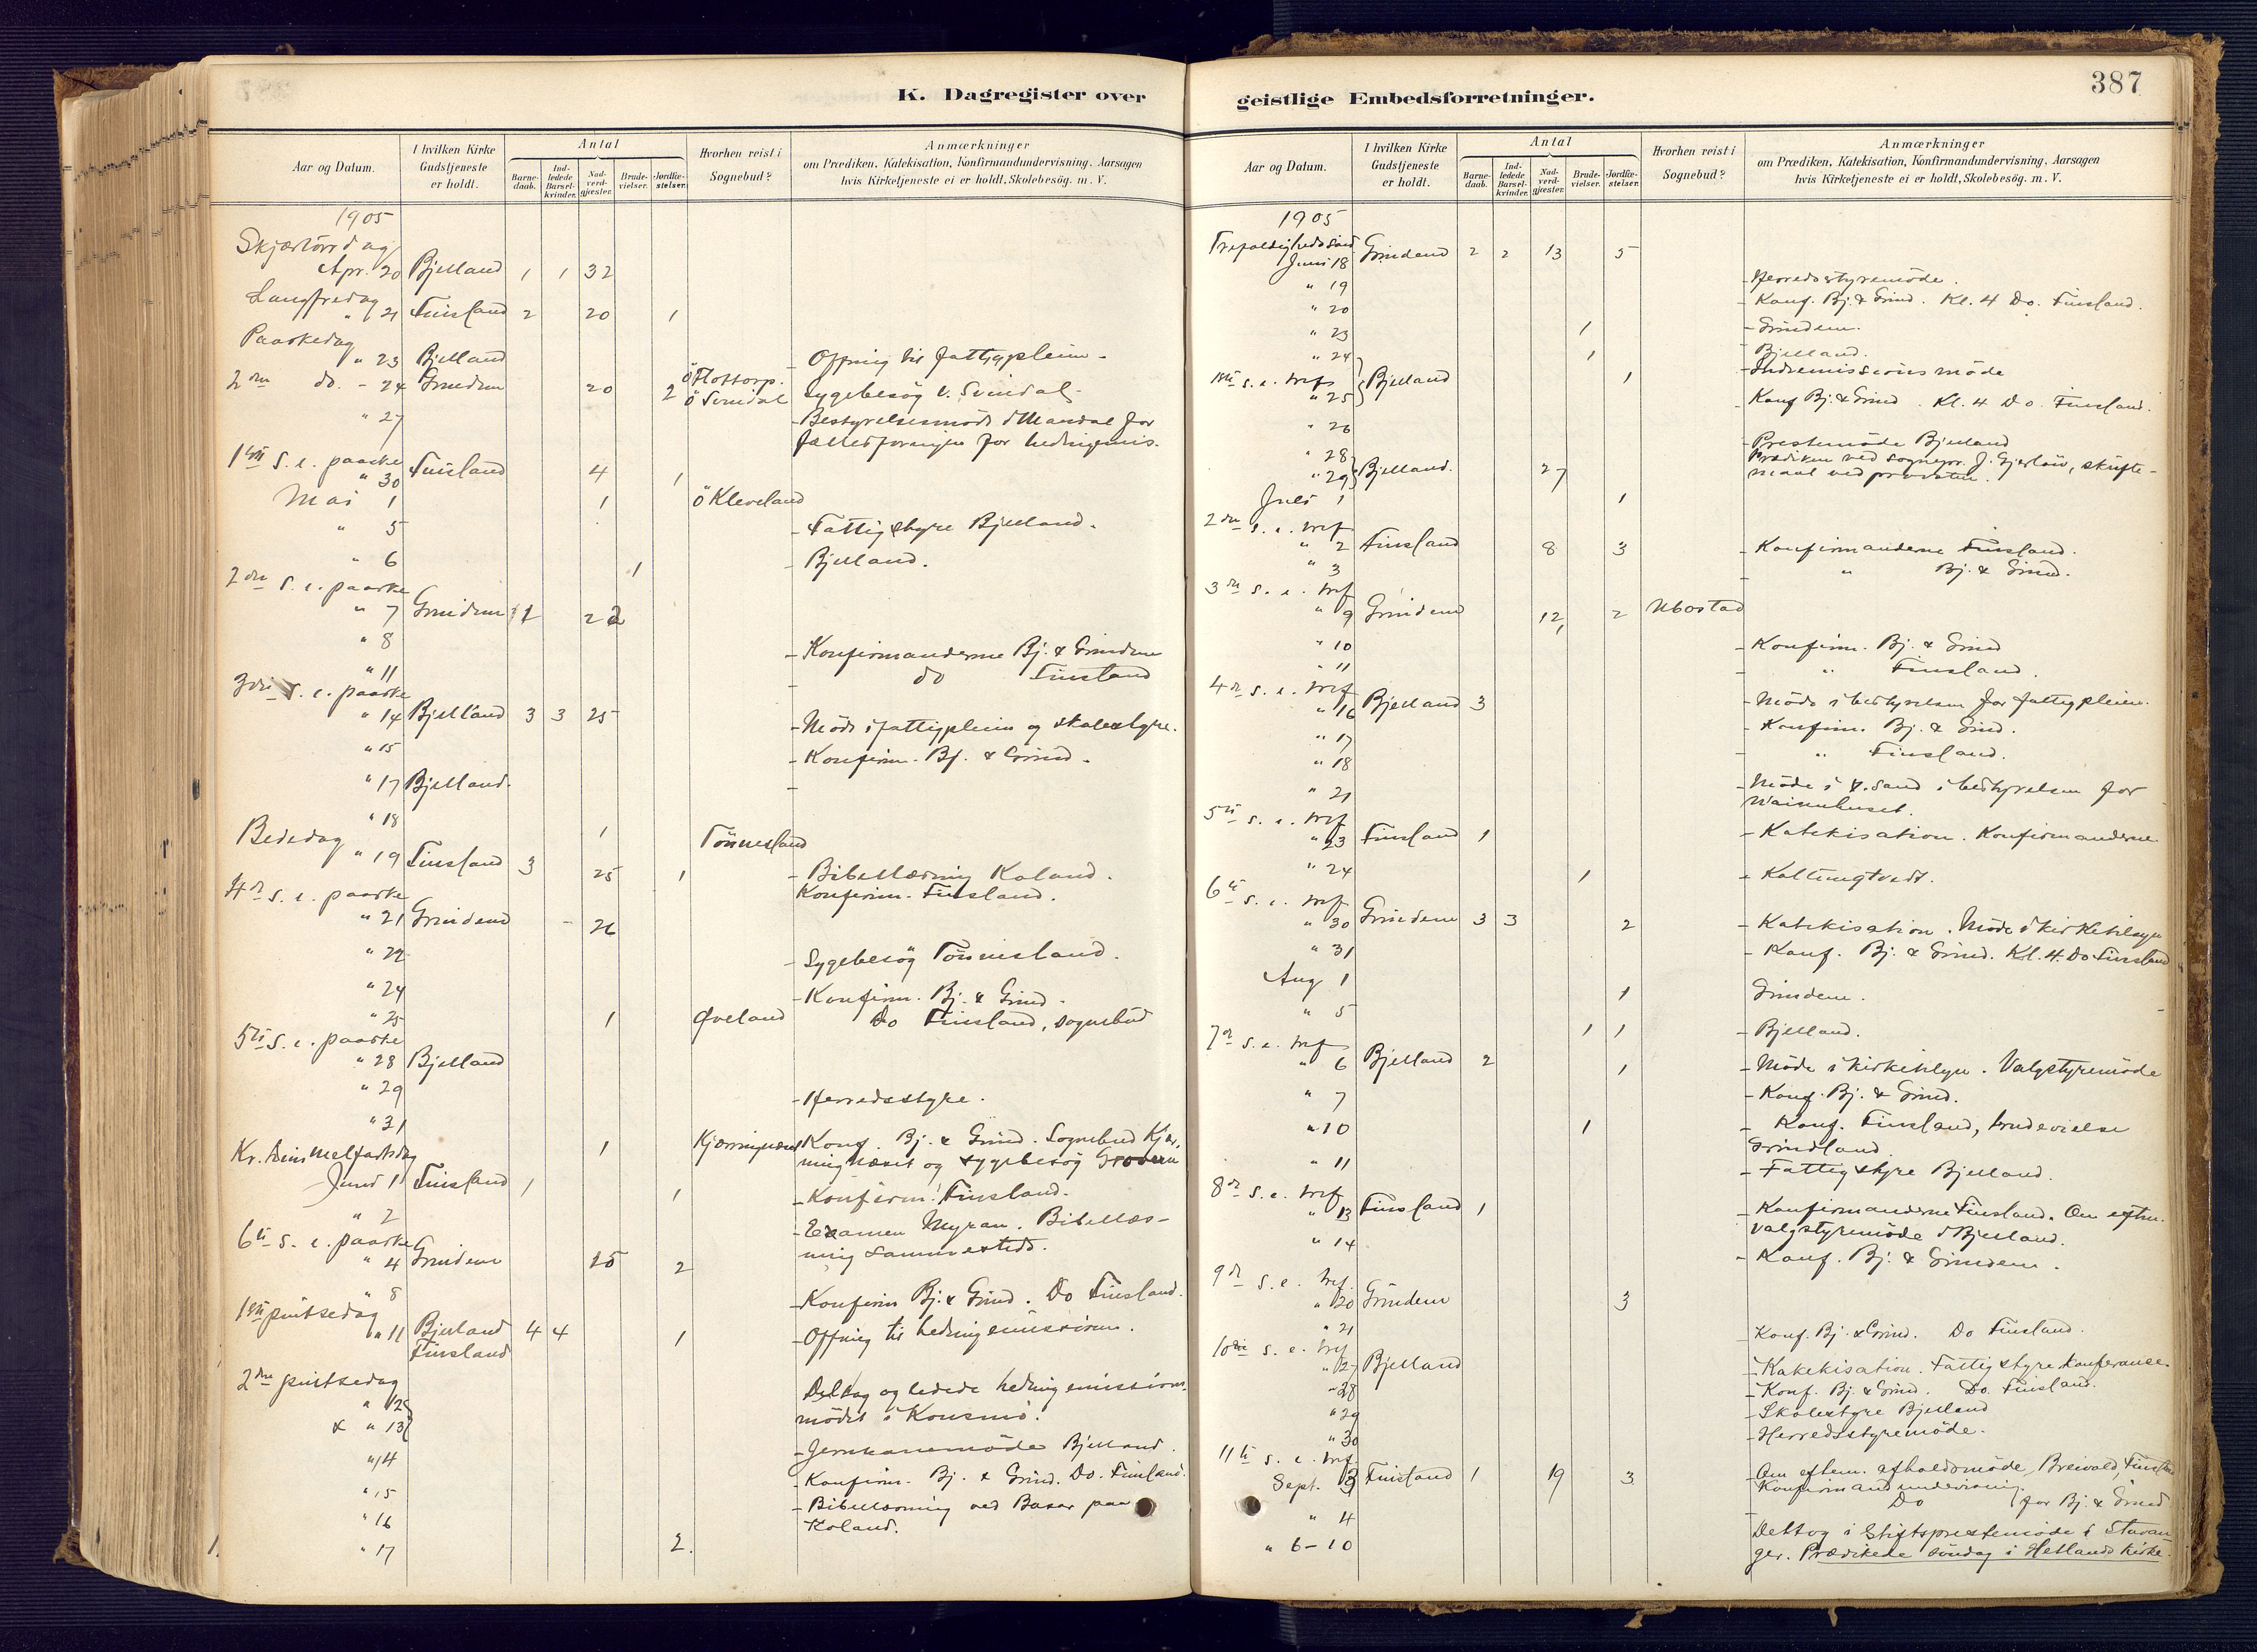 K. Dagregister over
Aar og Datum.
I hvilken Kirke Gudstjeneste er holdt.
Antal
Barne-daab.
Ind-ledede Barsel-kvinder.
Nad-verd-gjæster.
Brude-vielser.
Jordfæ-stelser.
Hvorhen reist i Sognebud?
Anmærkninger
om Prædiken, Katekisation, Konfirmandundervisning, Aarsagen
hvis Kirketjeneste ei er holdt, Skolebesög. m. V.
1905
Skjærtörsdag
Apr. 20 Bjelland 1 1 32
Langfredag
" 21 Finsland 2 20 1
Paaskedag
" 23 Bjelland - Offring til fattigpleien.
2den do. - 24 Grindem 20 2 Ö Flottorp. Ö Svindal Sygebesög i Svindal
" 27 - Bestyrelsesmöde i Mandal for
fællesforeningen for hedningemis.
1ste S. e. paaske
" 30 Finsland 4 1
Mai 1 1 Ö Kleveland
" 5 - Fattigstyre Bjelland.
" 6 1 - Bjelland.
2den S. e. paaske
" 7 Grindem 1 22
" 8 - Konfirmanderne Bj. & Grindem
" 11 - do Finsland
3die S. e. paaske
" 14 Bjelland 3 3 25 - Möde i fattigpleien og skolestyre.
" 15 - Konfirm. Bj. & Grind.
" 17 Bjelland. -
" 18 1 Tönnesland
Bededag
" 19 Finsland 3 25 1 - Bibellæsning Koland.
Konfirm. Finsland.
4de S. e. paaske
" 21 Grindem - 26
" 22 - Sygebesög Tönnesland.
" 24 - Konfirm. Bj. & Grind.
" 25 1 Øveland Do Finsland, sognebud
5te S. e. paaske
" 28 Bjelland
" 29 - Herredsstyre.
" 31 1 Kjærringnæset Konf. Bj. & Grind. Sognebud Kjær-
ringnæset og sygebesög
Kr. himmelfartsdag
Juni 1 Finsland 1 1 - Konfirm. Finsland.
" 2 - Examen Myran. Bibellæs-
ning sammesteds.
6te S. e. paaske
" 4 Grindem 25 2
" 8 - Konfirm Bj. & Grind. Do Finsland.
1ste pintsedag
" 11 Bjelland 4 4 1 - Offring til hedningemissionen.
Finsland
2den pintsedag
" 12 Deltog og ledede hedningemissions-
& " 13 mödet i Konsmo.
" 14 - Jernbanemöde Bjelland.
" 15 - Konfirm. Bj. & Grind. Do. Finsland.
" 16 - Bibellæsning ved Basar paa
Koland.
" 17 2.
387
geistlige Embedsforretninger.
Aar og Datum.
I hvilken Kirke Gudstjeneste er holdt.
Antal
Barne-daab.
Ind-ledede Barsel-kvinder.
Nad-verd-gjæster.
Brude-vielser.
Jordfæ-stelser.
Hvorhen reist i Sognebud?
Anmærkninger
om Prædiken, Katekisation, Konfirmandundervisning, Aarsagen
hvis Kirketjeneste ei er holdt, Skolebesög. m. V.
1905
Trefoldigheds sönd
Juni 18 Grindem 2 2 13 5
" 19 - Herredsstyremöde.
" 20 - Konf. Bj. & Grind. Kl. 4 Do. Finsland.
" 23 1 - Grindem.
" 24 1 - Bjelland.
1ste S. e. tref
" 25 Bjelland 1 - Indremissions möde
" 26 - Konf Bj. & Grind. Kl. 4 Do. Finsland.
" 28 - Prestemöde Bjelland
" 29 Bjelland. 27 Prædiken ved sognepr. J. Gjerlöw, skrifte-
maal ved provsten.
Juli 1 1
2den S. e. tref
" 2 Finsland 8 3 - Konfirmanderne Finsland.
" 3 - " Bj. & Grind.
3die S. e. tref
" 9 Grindem 12 2 Ubostad
" 10 - Konfirm. Bj. & Grind
" 11 - " Finsland.
4de S. e. tref
" 16 Bjelland 3 - Möde i bestyrelsen for fattigpleien.
" 17 - Konfirm. Bj. & Grind.
" 18 - " Finsland.
" 21 - Möde i K.sand i bestyrelsen for
Waisenhuset.
5te S. e. tref
" 23 Finsland 1 - Katekisation. Konfirmanderne
" 24 1 - Kaltungtvedt.
6te S. e. tref
" 30 Grindem 3 3 2 - Katekisation. Möde i kirketilsyn
" 31 - Konf. Bj. & Grind. Kl. 4. Do Finsland
Aug 1 1 Grindem.
" 5 1 1 - Bjelland.
7de S. e. tref
" 6 Bjelland 2 1 - Möde i kirketilsyn. Valgstyremöde
" 7 - Konf. Bj. & Grind.
" 10 1 - Konf. Finsland, brudevielse
Grindland.
" 11 - Fattigstyre Bjelland.
8de S. e. tref
" 13 Finsland 1 - Konfirmanderne Finsland. Om eftm.
valgstyremöde i Bjelland.
" 14 - Konf. Bj. & Grindem.
9de S. e. tref.
" 20 Grindem 3
" 21 Konf. Bj. & Grind. Do Finsland.
10de S. e. tref
" 27 Bjelland - Katekisation. Fattigstyre konferanse.
" 28 - Konf. Bj. & Grind. Do. Finsland.
" 29 - Skolestyre Bjelland
" 30 - Herredsstyremöde.
11te S. e. tref
Sept. 3 Finsland 1 19 3 - Om eftem. afholdsmöde, Breivold, Finsland
Konfirmandundervisning.
" 4 - Do for Bj. & Grind
" 6-10 Deltog i Stiftsprestemöde i Stavan-
ger. Prædikede söndag i Hetlands kirke.